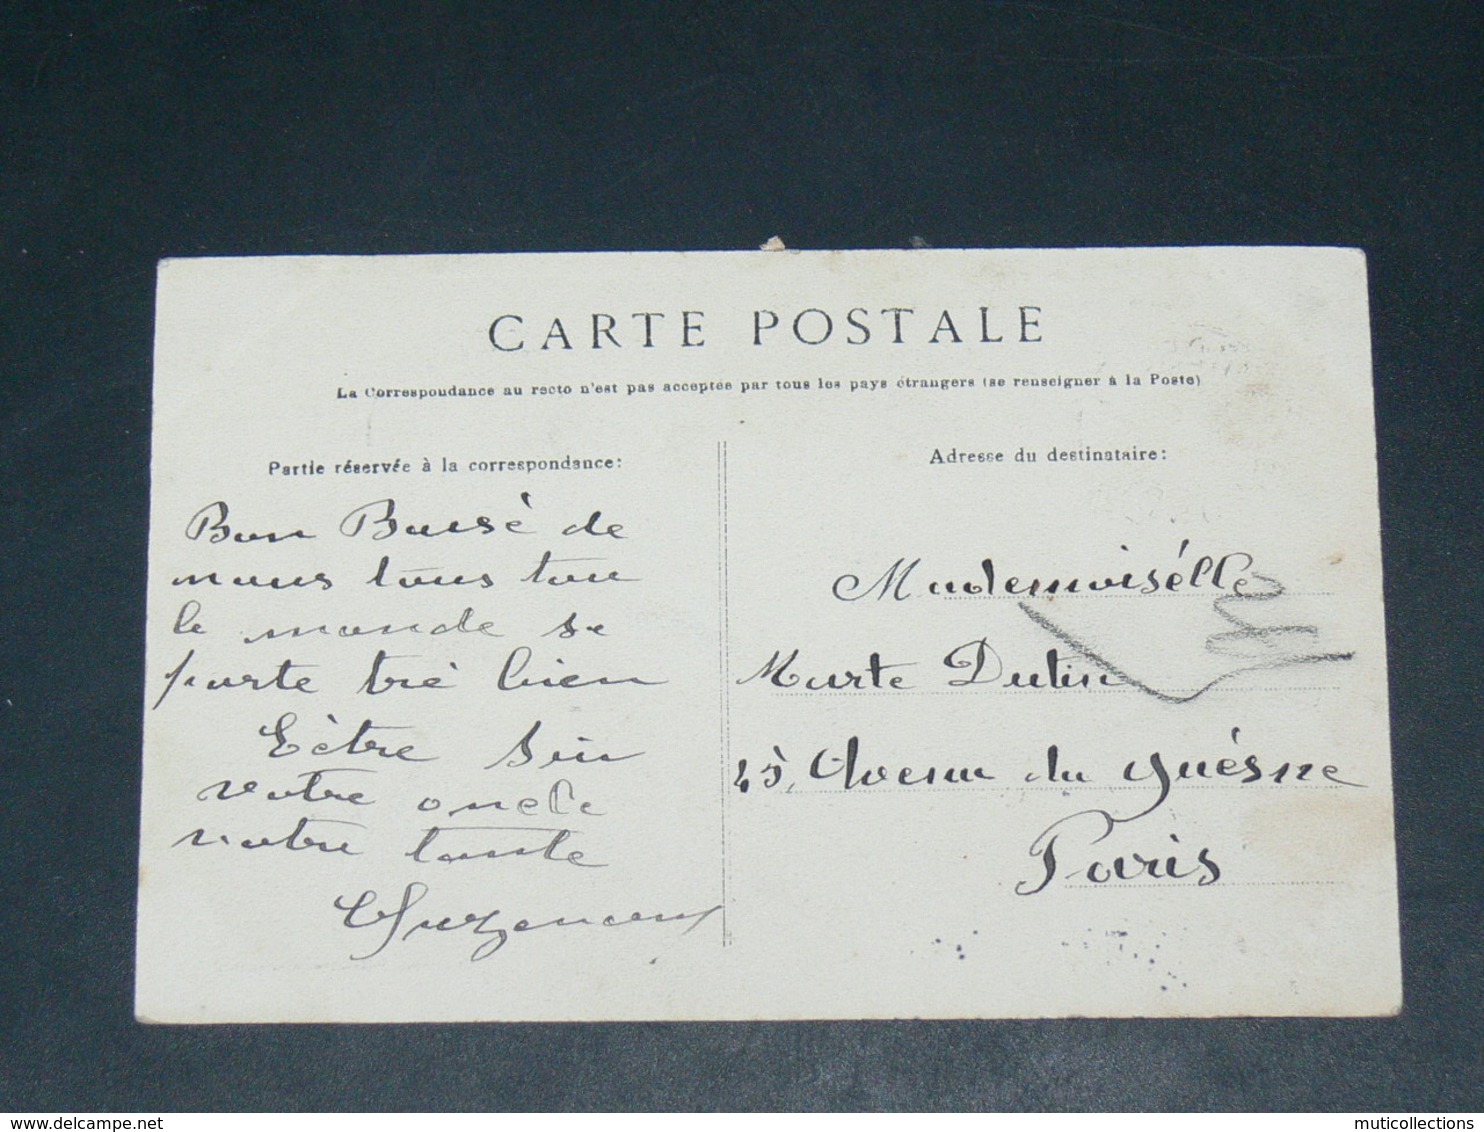 CARTE POSTALE
La Correspondance au recto n'est pas acceptée par tous les pays étrangers (se renseigner à la Poste)
Partie réservée à la correspondance:
Bon Baisé de
nous tous tou
le monde se
porte tré bien
votre oncle
votre tante
Adresse du destinataire:
Mademoisélle
Marte Dutin
45, Avenu du quésne
Paris
delcampe.net
muticollections